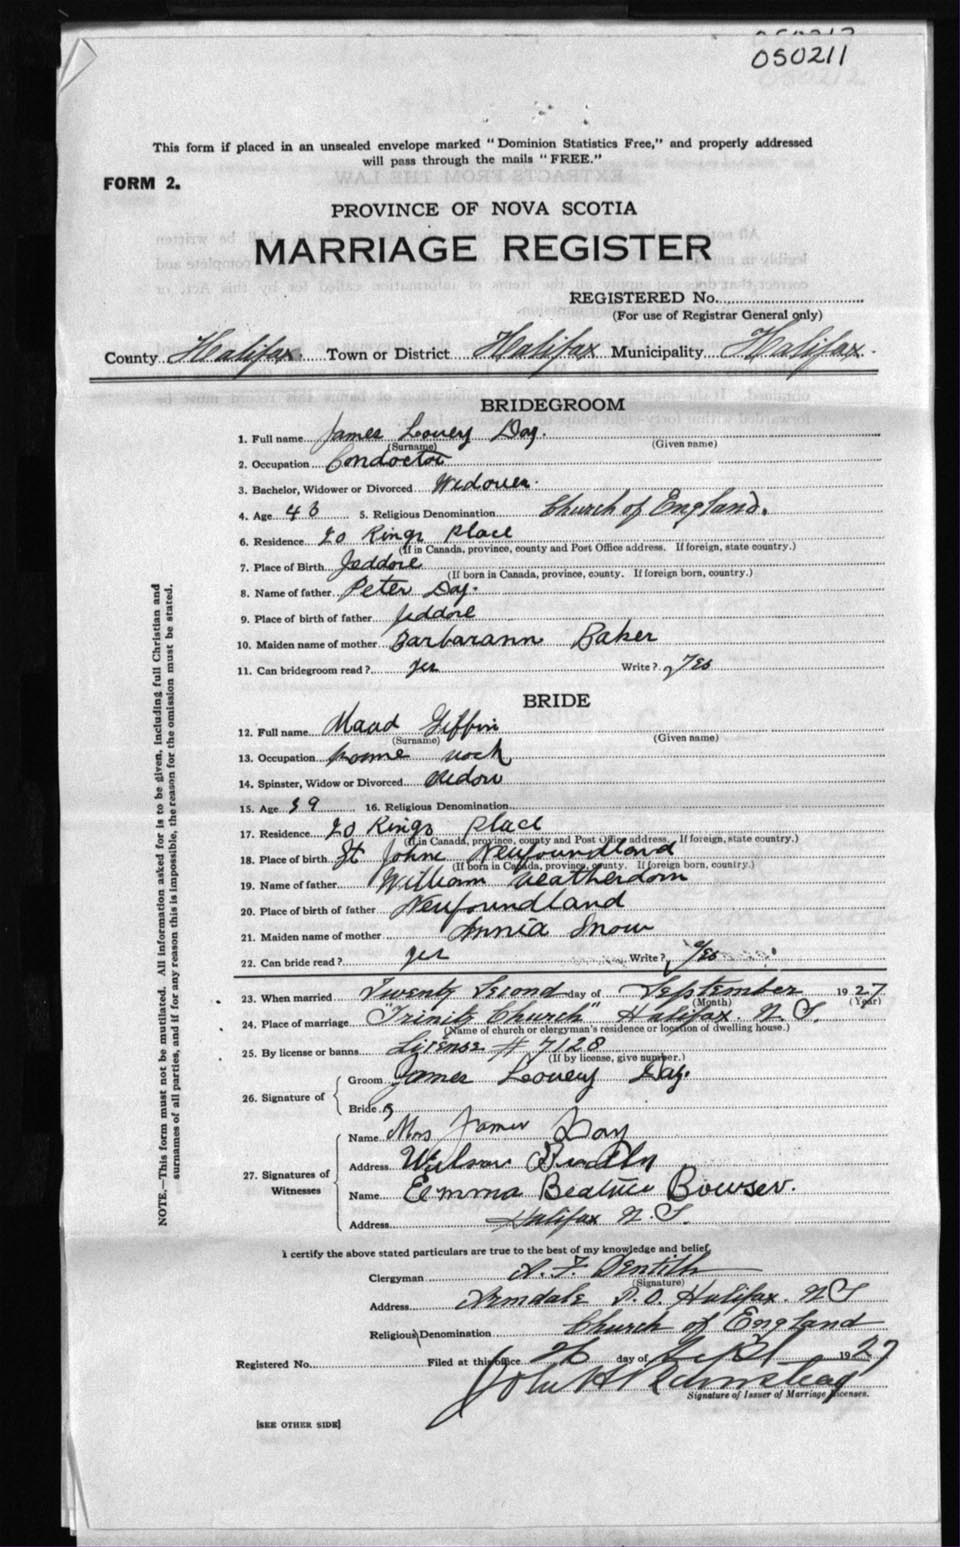 050211
This form if placed in an unsealed envelope marked "Dominion Statistics Free," and properly addressed
will pass through the mails "FREE."
FORM 2.
PROVINCE OF NOVA SCOTIA
MARRIAGE REGISTER
REGISTERED No.
(For use of Registrar General only)
County Halifax Town or District Halifax Municipality Halifax
BRIDEGROOM
1. Full name James Lovery Day.
(Surname) (Given name)
2. Occupation Condoctor
3. Bachelor, Widower or Divorced Widower.
4. Age 43 5. Religious Denomination Church of England.
6. Residence 20 Kings Place
(If in Canada, province, county and Post Office address. If foreign, state country.)
7. Place of Birth Jeddore
(If born in Canada, province, county. If foreign born, country.)
8. Name of father Peter Day.
9. Place of birth of father Jeddore
10. Maiden name of mother Barbarann Baker
11. Can bridegroom read? yes Write? Yes
BRIDE
12. Full name Maad Giffin
(Surname) (Given name)
13. Occupation home
14. Spinster, Widow or Divorced Widow
15. Age 39 16. Religious Denomination
17. Residence 20 Kings Place
(If in Canada, province, county and Post Office address. If foreign, state country.)
18. Place of birth St Johns Newfoundland
(If born in Canada, province, county. If foreign born, country.)
19. Name of father William Weatherdorn
20. Place of birth of father Newfoundland
21. Maiden name of mother Annia Snow
22. Can bride read? yes Write? Yes
23. When married Twenty Second day of September 1927
(Month) (Year)
24. Place of marriage "Trinity Church" Halifax. N.S.
(Name of church or clergyman's residence or location of dwelling house.)
25. By license or banns License # 7128
(If by license, give number.)
26. Signature of
Groom James Lovery Day.
Bride
27. Signatures of Witnesses
Name Mrs James Day
Address Wilson
Name Emma Beatrice Bowser.
Address Halifax N.S.
I certify the above stated particulars are true to the best of my knowledge and belief,
Clergyman A. F. Dentith
(Signature)
Address Armdale P.O. Halifax. N.S
Religious Denomination Church of England
Registered No. Filed at this office 26 day of Sept 1927
John H
Signature of Issuer of Marriage Licenses.
[SEE OTHER SIDE]
NOTE.—This form must not be mutilated. All information asked for is to be given, including full Christian and
surnames of all parties, and if for any reason this is impossible, the reason for the omission must be stated.